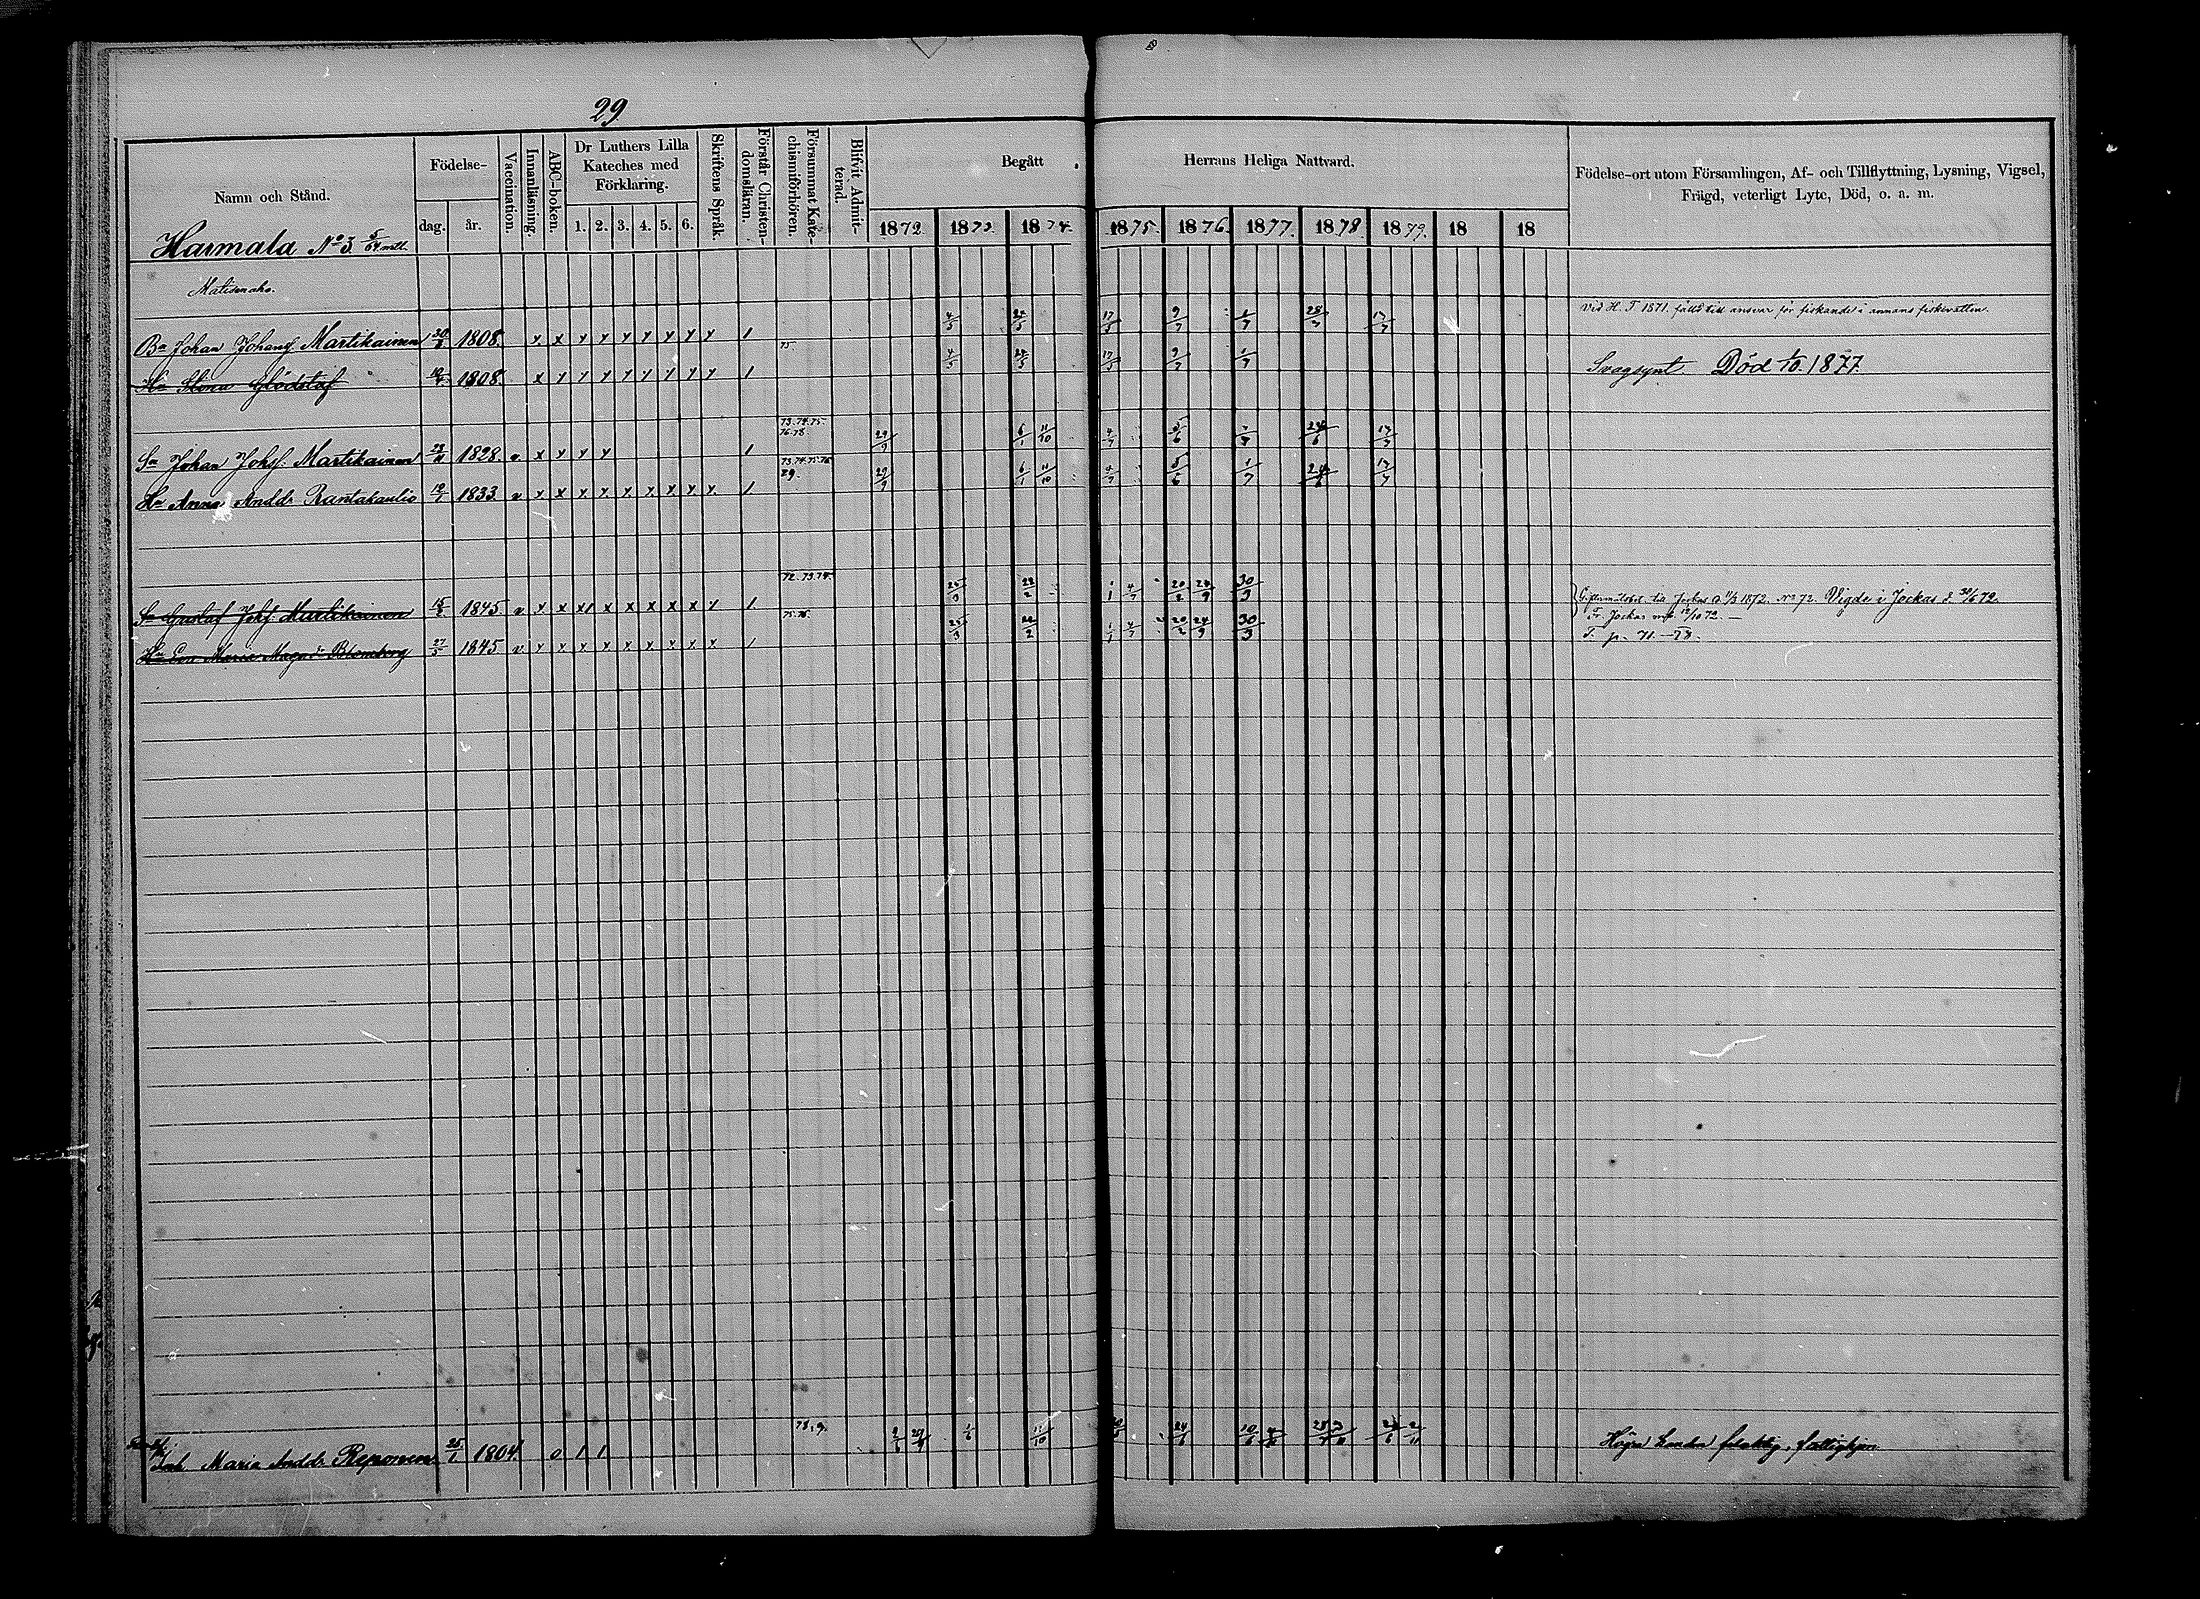 29
Namn och Stånd.
Födelse-
dag.
år.
Vaccination.
Innanläsning.
ABC-boken.
Dr Luthers Lilla
Kateches med
Förklaring.
1. 2. 3. 4. 5. 6.
Skriftens Språk.
Förstår Christen-
domsläran.
Försummat Kate-
chismiförhören.
Blifvit Admit-
terad.
Begått Herrans Heliga Nattvard.
1872. 1873. 1874. 1875. 1876. 1877. 1878. 1879. 18 18
Födelse-ort utom Församlingen, Af- och Tillflyttning, Lysning, Vigsel,
Frägd, veterligt Lyte, Död, o. a. m.
Harmala No 3 5/64 mtl.
Matisenaho.
Vid H. T. 1871. fälld till ansvar för fiskande i annans fiskevatten.
Bn Johan Johansf. Martikainen 1808. x x x x x x x x x 1
4/5 24/5 17/5 9/7 1/7 28/7 17/7
75
Hu Stina Glödstaf 1808. x x x x x x x x x 1
4/5 24/5 17/5 9/7 1/7
Svagsynt. Död 1/10. 1877.
73.74.75.
76.78.
Sn Johan Johsf. Martikainen 1828. v x x x x 1
29/9 6/1 11/10 4/7 5/6 1/7 24/6 17/7
73.74.75.76
79.
Hu Anna Andds Rantakaulio 12/1 1833. v x x x x x x x x x 1
29/9 6/1 11/10 4/7 5/6 1/7 24/6 17/7
72.73.74.
Sn Gustaf Johsf. Martikainen 15/3 1845. v x x x1 x x x x x x 1.
25/3 22/2 1/1 4/7 20/2 24/9 30/9
Giftermålsbet. till Jockas d 11/3 1872. No 72. Vigde i Jockas d. 30/6 72.
75.76.
Fr. Jockas 12/10 72. —
Hu Eva Maria Magsdr Blomberg 27/5 1845 v x x x x x x x x x 1
25/3 22/2 1/1 4/7 20/2 24/9 30/9
T. p. 71. — 78.
78.9.
Inh. Maria Andds Reponen 25/1 1804. 0 1 1
Högra handen felaktig, fattighjon